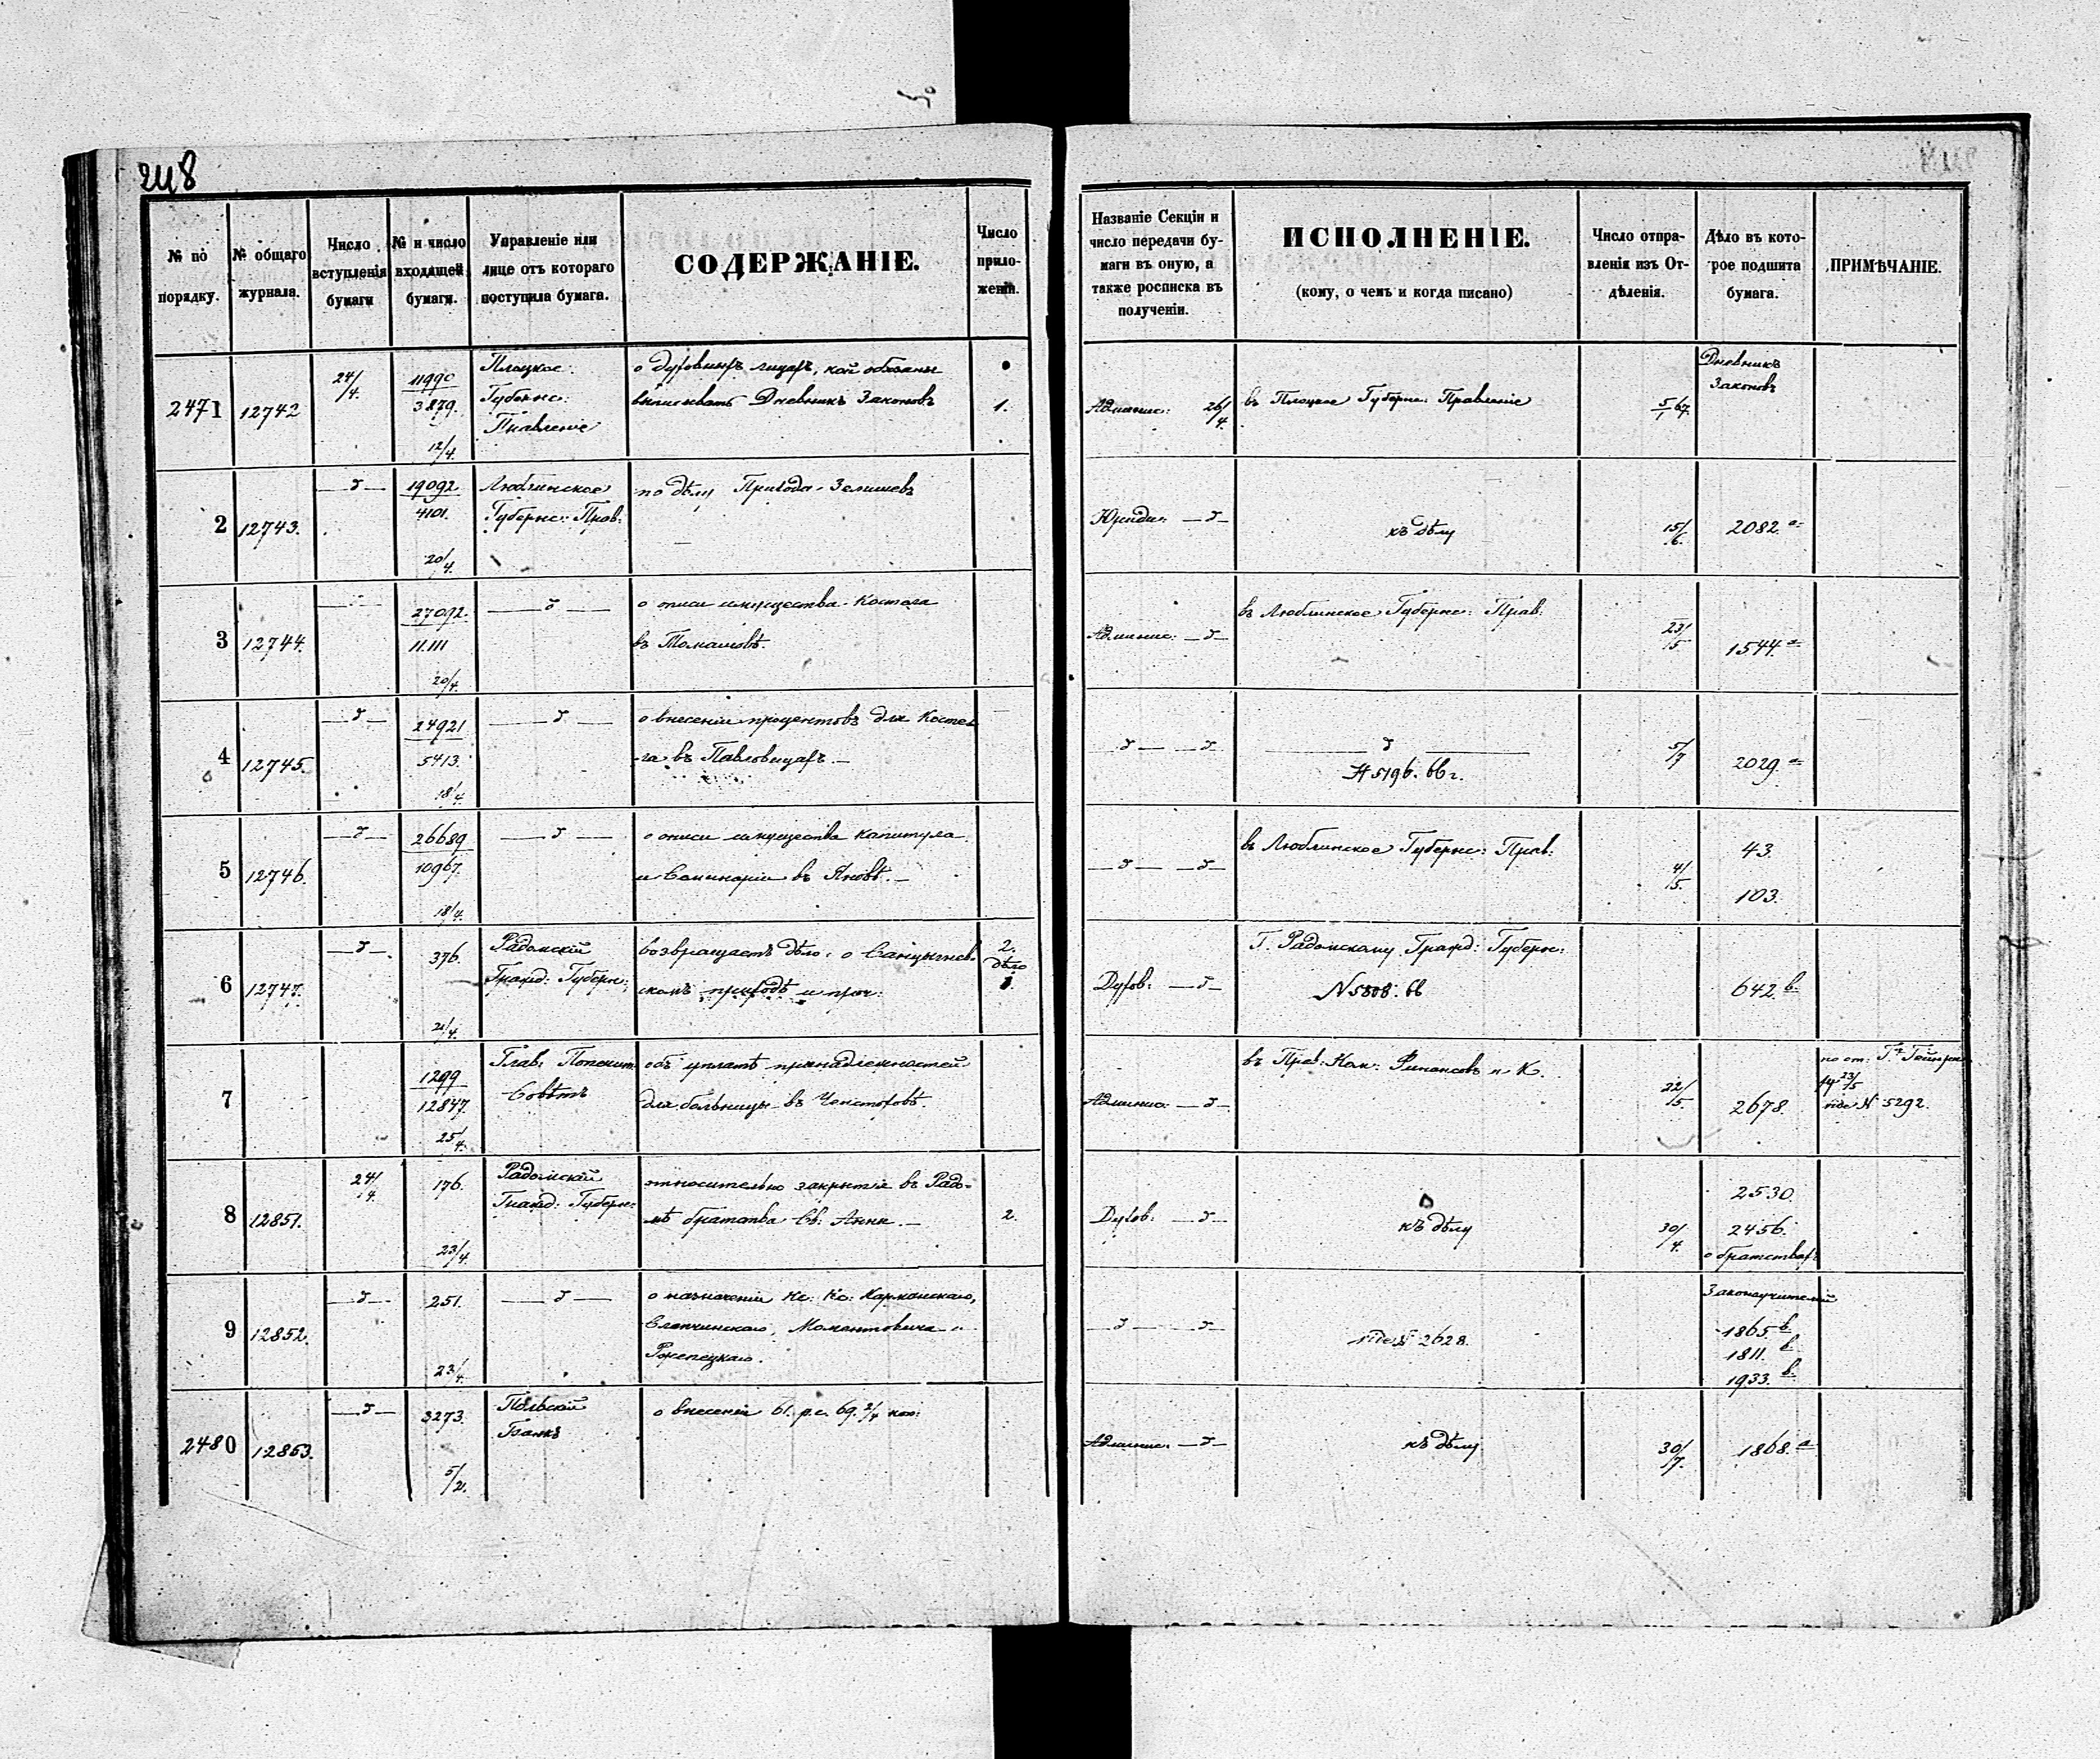 248
№ по порядку.
№ общаго журнала.
Число вступленія бумаги
№ и число входящей бумаги.
Управленіе или лице отъ котораго поступила бумага.
СОДЕРЖАНІЕ.
Число приложеній.
Названіе Секціи и число передачи бумаги въ оную, а также росписка въ полученіи.
ИСПОЛНЕНІЕ.
(кому, о чемъ и когда писано)
Число отправленія изъ Отдѣленія.
Дѣло въ которое подшита бумага.
ПРИМѢЧАНІЕ.
2471 12742 24/4. 11990 3879. 12/4.
Плоцкое Губернс: Правленіе
о Духовныхъ лицахъ, кои обязаны
выписывать Дневникъ Законовъ
1.
Админис: 26/4.
въ Плоцкое Губернс: Правленіе
5/1 67.
Дневникъ Законовъ
2 12743. 19092 4101. 20/4.
Люблинское Губернс: Прав:
по дѣлу
Юриди:
къ дѣлу
15/6.
2082 а
3 12744. 27092. 11111 20/4.
о описи имущества Костела
въ Томашовѣ.
Админис:
въ Люблинское Губернс: Прав:
23/5
1544 а
4 12745. 24921 5413. 18/4.
о внесеніи процентовъ для Косте
ла въ Павловицахъ
N 5196. 66 г.
5/7
2029 а
5 12746. 26689 10967. 18/4.
о описи имущества Капитула
и Семинаріи въ Яновѣ.
въ Люблинское Губернс: Прав:
4/5.
43.
103.
6 12747. 376. 21/4.
Радомскій Гражд: Губерн:
возвращаетъ дѣло о
скомъ приходѣ и проч:
2. дѣло 1.
Духов:
Г. Радомскому Гражд: Губерн:
N 5808. 66
642. в.
7 1299 12847. 25/4.
Глав: Попечит: Совѣтъ
объ уплатѣ принадлежностей
для больницы въ Ченстоховѣ.
Админис:
въ Прав: Ком: Финансовъ и К.
22/5.
2678.
vide N 5292.
8 12851. 24/4. 176. 23/4.
Радомскій Гражд: Губерн:
относительно закрытія въ Радо-
мѣ братства Св: Анны.
2.
Духов:
къ дѣлу
30/4.
2530.
2456.
о братствахъ
9 12852. 251. 23/4.
о назначеніи Кс: Кс:
vide N 2628.
Законоучителей
1865 в.
1811. в.
1933. в.
2480 12853. 3273. 5/21.
Польскій Банкъ
о внесеніи 61. р. с. 69. 2/4 коп:
Админис:
къ дѣлу
30/7.
1868. а